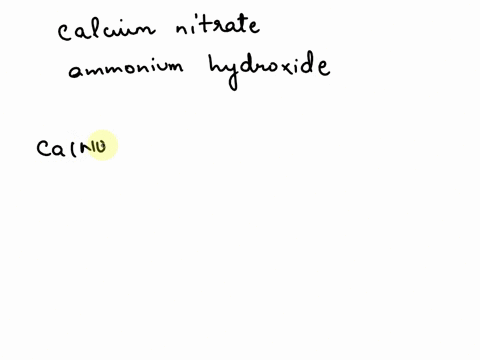 calcium nitrate
ammonium hydroxide
Ca(NO